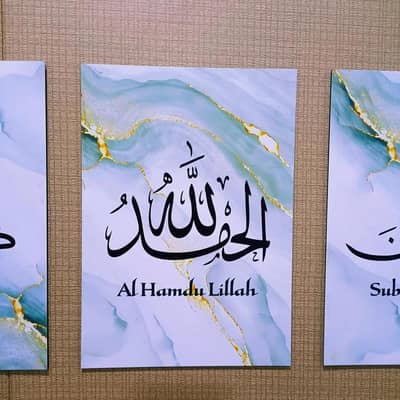 الحمد لله
Al Hamdu Lillah
Sub